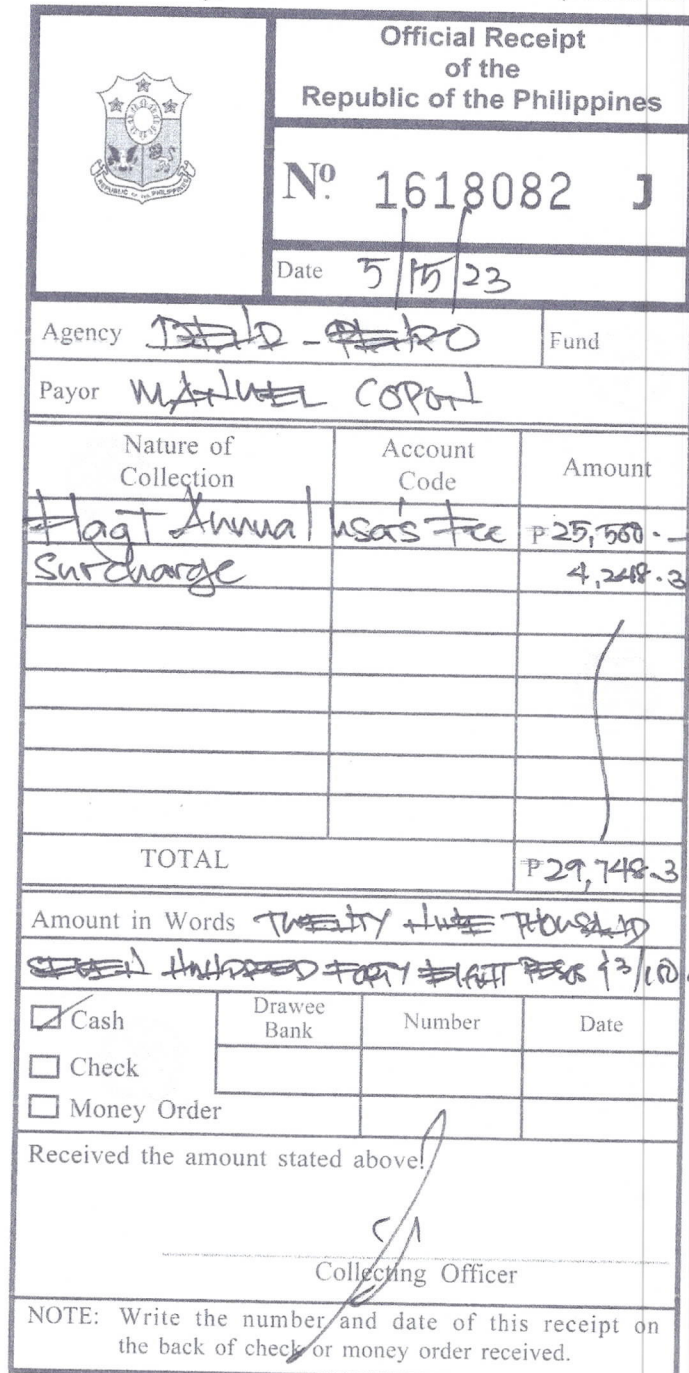 Official Receipt
of the
Republic of the Philippines
REPUBLIC OF THE PHILIPPINES
Nº. 1618082 J
Date 5/15/23
Agency DENR - PENRO Fund
Payor MANUEL COPON
Nature of Collection Account Code Amount
FlagT Annual user's Fee ₱25,500.-
Surcharge 4,248.3
TOTAL ₱29,748.3
Amount in Words TWENTY NINE THOUSAND
SEVEN HUNDRED FORTY EIGHT PESOS & 3/100.
Cash Drawee Bank Number Date
Check
Money Order
Received the amount stated above.
Collecting Officer
NOTE: Write the number and date of this receipt on
the back of check or money order received.